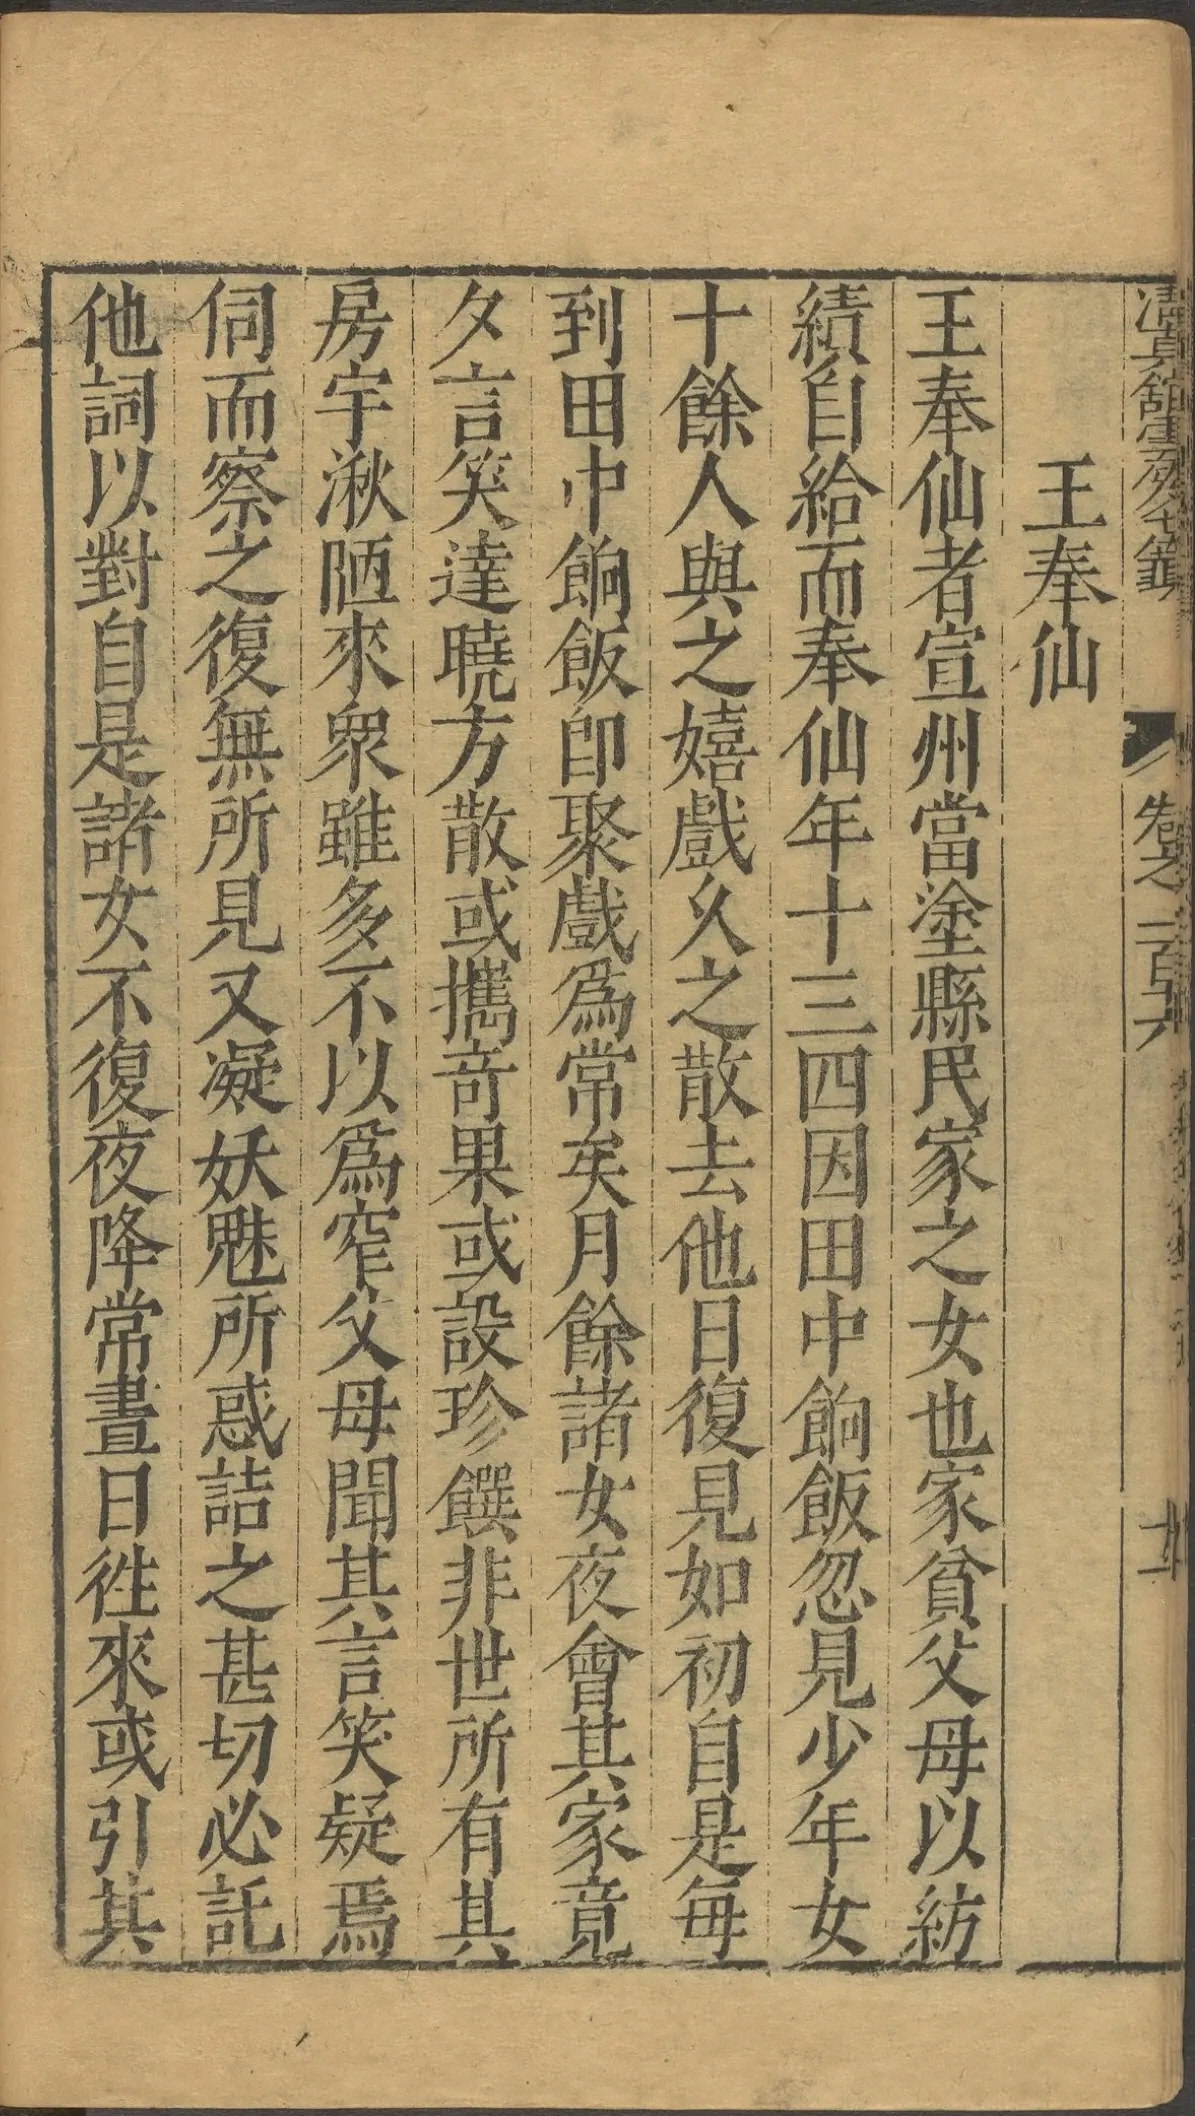 清真館雲笈七籤 卷之一百十六
王奉仙
王奉仙者宣州當塗縣民家之女也家貧父母以紡
績自給而奉仙年十三四因田中餉飯忽見少年女
十餘人與之嬉戲久之散去他日復見如初自是每
到田中餉飯卽聚戲爲常矣月餘諸女夜會其家竟
夕言笑達曉方散或攜奇果或設珍饌非世所有其
房宇湫陋來衆雖多不以爲窄父母聞其言笑疑焉
伺而察之復無所見又凝妖魅所惑詰之甚切必託
他詞以對自是諸女不復夜降常晝日徃來或引其